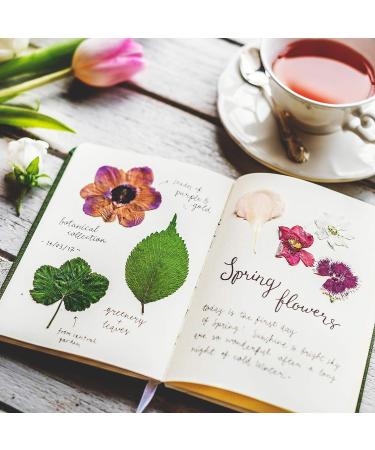 shades of
purple &
gold
botanical
collection
20/03/17
greenery
+
leaves
from central
garden
Spring flowers
today is the first day
of spring! Sunshine is bright sky
are so wonderful after a long
night of cold winter.